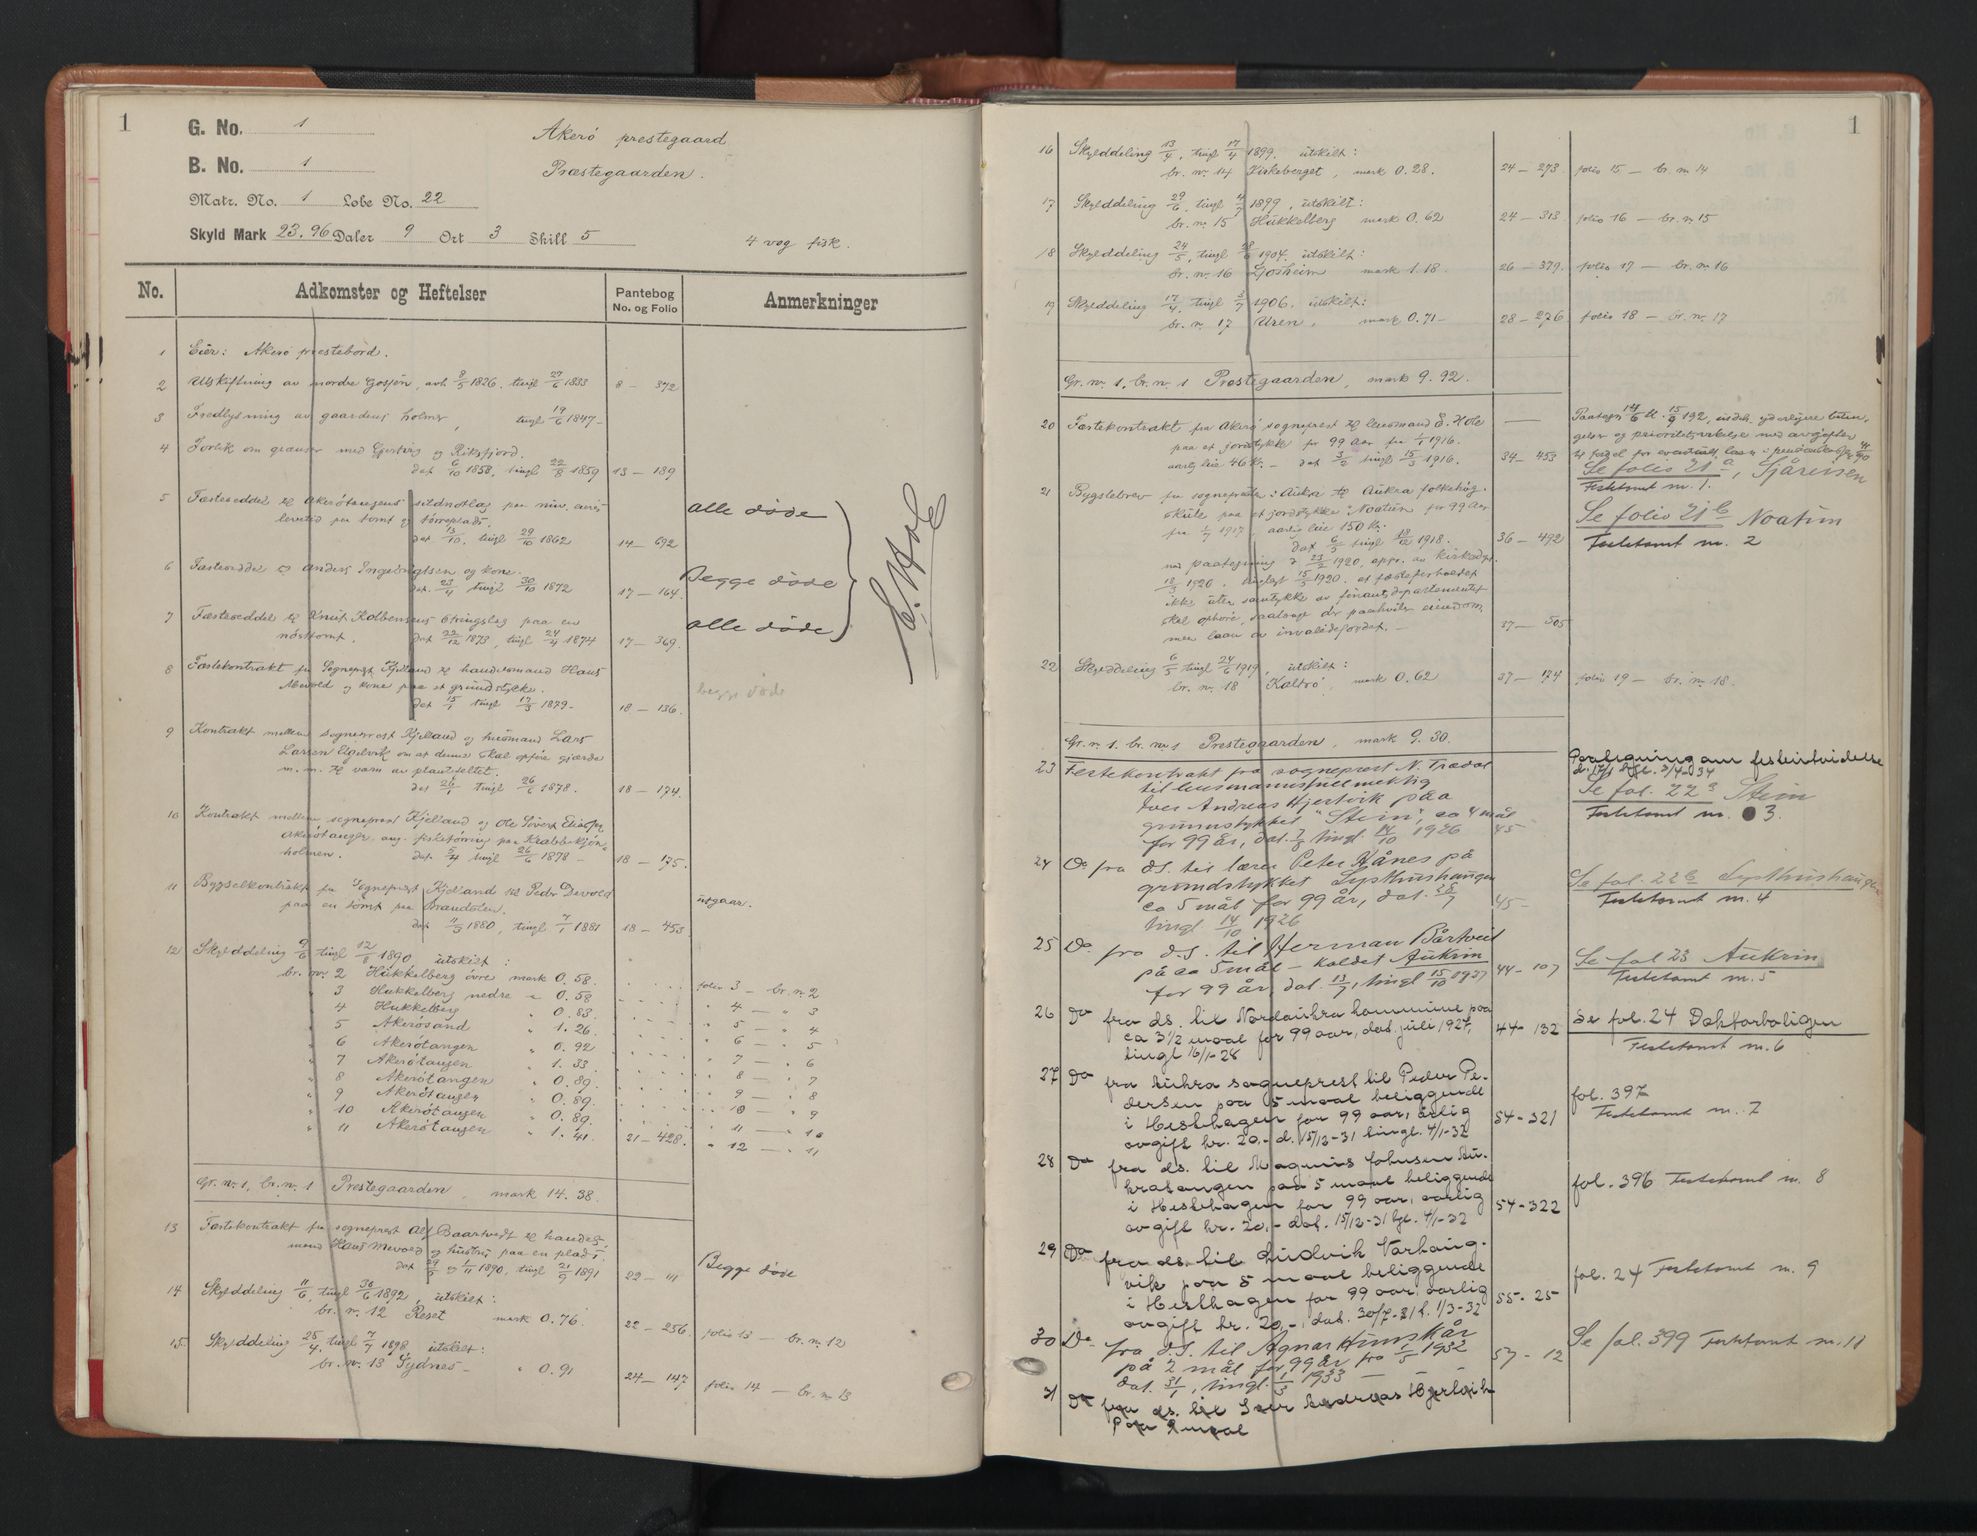 1
G. No. 1
Akerö prestegaard
B. No. 1
Præstegaarden.
Matr. No. 1 Løbe No. 22
Skyld Mark 23.96 Daler 9 Ort 3 Skill 5
4 vog fisk.
No. Adkomster og Heftelser Pantebog No. og Folio Anmerkninger
1 Eier: Akerö prestebord.
2 Utskiftning av nordre Gosjön, avh. 8/5 1826, tingl 27/6 1833 8 — 372
3 Fredlysning av gaardens holmer, tingl 19/6 1847 —
4 Forlik om grænser med Gjertvig og Riksfjord.
dat 6/10 1858, tingl 22/8 1859 13 — 189
5 Fæsteseddel til Akerötangens sildnotlag paa nuv. eieres
levetid paa tomt og tørreplads.
dat 13/10, tingl 29/10 1862 14 — 692 alle døde
6 Fæsteseddel til Anders Ingebrigtsen og kone.
dat. 23/4 tingl 30/10 1872 17 — 164. Begge døde
7 Fæsteseddel til Knut Kolbensens Stringslag paa en
nösttomt. dat 22/12 1873, tingl 24/4 1874 17 — 369. alle døde
E. Hole
8 Fæstekontrakt fra Sogneprest Kjelland til handelsmand Hans
Mevold og kone paa et grundstykke.
dat 15/1 tingl 17/3 1879 — 18 — 136. begge døde
9 Kontrakt mellem sogneprest Kjelland og husmand Lars
Larsen Eigelvik om at denne skal opföre gjærde
m.m. til værn av plantefeltet.
dat 26/1 tingl 26/6 1878. 18 — 174.
10 Kontrakt mellem sogneprest Kjelland og Ole Sivert Elias
Akerötangen ang. fisketørring paa Krabbeskjön
holmen. dat 5/4 tingl 26/6 1878 — 18 — 175.
11 Bygselkontrakt fra Sogneprest Kjelland til Peder Devold
paa en tomt paa Brandslen.
dat 11/3 1880, tingl 7/1 1881 18 — 453. utgaar.
12 Skylddeling 9/6 tingl 12/8 1890 utskilt:
br. nr. 2 Hukkelberg övre mark 0.58. folio 3 — br. nr. 2
" 3 Hukkelberg nedre " 0.58 " 4 — " 3
" 4 Hukkelberg " 0.83. " 5 — " 4
" 5 Akerösand " 1.26. " 6 — " 5
" 6 Akerötangen " 0.92 " 7 — " 6
" 7 Akerötangen " 1.33. " 8 — " 7
" 8 Akerötangen " 0.89. " 9 — " 8
" 9 Akerötangen " 0.89. " 10 — " 9
" 10 Akerötangen " 0.89. " 11 — " 10
" 11 Akerötangen " 1.41. 21 — 428. " 12 — " 11
Gr. nr. 1, br. nr. 1 Prestegaarden, mark 14.38.
13 Fæstekontrakt fra sogneprest Alf Baartvedt til handels-
mand Hans Mevold og hustru paa en plads
dat 29/9 og 1/11 1890, tingl 21/9 1891 22 — 111 Begge døde
14 Skylddeling 11/6, tingl 30/6 1892, utskilt:
br. nr. 12 Reset mark 0.76. 22 — 256. folio 13 — br. nr. 12
15. Skylddeling 25/4, tingl 7/7 1898 utskilt:
br. nr. 13 Sydnes — " 0.91 24 — 147 folio 14 — br. nr. 13
1
16 Skylddeling 13/4, tingl 17/4 1899. utskilt:
br. nr. 14 Kirkeberget, mark 0.28. 24 — 273 folio 15 — br. nr 14
17 Skylddeling 29/6, tingl 4/7 1899, utskilt:
br. nr. 15 Hukkelberg mark 0.62 24 — 313 folio 16 — br. nr. 15
18 Skylddeling 24/5, tingl 28/6 1904. utskilt:
br. nr. 16 Ljosheim mark 1.18. 26 — 379. folio 17 — br. nr. 16
19 Skylddeling 17/4, tingl 3/7 1906. utskilt:
br. nr. 17 Uren, mark 0.71 — 28 — 276 folio 18 — br. nr. 17
Gr. nr. 1, br. nr. 1 Prestegaarden, mark 9.92.
20 Fæstekontrakt fra Akerö sogneprest til lensmand E. Hole
paa et jordstykke for 99 aar fra 1/1 1916.
aarlig leie 46 Kr. — dat 3/2 tingl 15/3 1916. 34 — 453
Se folio 21a, Sjåreisen
Festetomt nr. 1.
21 Bygslebrev fra sognepresten i Aukra til Aukra folkehøg-
skule paa et jordstykke "Noatun for 99 aar
fra 1/7 1917, aarlig leie 150 kr.
dat 6/5 tingl 18/12 1918. 36 — 492
Se folio 21b Noatun
Festetomt nr. 2
med paategning d 23/2 1920, appr. av kirkedep.
18/3 1920, tinglyst 15/5 1920. at fæsteforholdet
ikke uten samtykke av finansdepartementet
skal ophöre, saalænge der paahviler eiendom-
men laan av invalidefondet. — 37 — 505
22 Skylddeling 6/5 tingl 24/6 1919, utskilt:
br. nr. 18 Kaltrö, mark 0.62 37 — 174 folio 19 — br. nr. 18.
Gr. nr. 1. br. nr. 1 Prestegaarden, mark 9.30.
23 Festekontrakt fra sogneprest N. Trædal
til lensmannsfullmektig
Iver Andreas Hjertvik på a
grunnstykket "Stein", ca 4 mål
for 99 år, dat. 7/8 tingl 14/10 1926 45
d. 17/1 tgl. 3/4-34
Se fol. 22a Stein
Festetomt nr. 3.
24 Do fra d.s. til lærer Peter Hånes på
grundstykket Lysthushaugen
ca 5 mål for 99 år, dat. 28/7 45 —
tingl 14/10 1926
Se fol. 22b Lysthushaugen
Festetomt nr. 4
25 Do fra d.s. til Herman Bårtveit
på ca 5 mål — kaldet Aukrim
for 99 år, dat. 13/7, tingl 15/10 1927 44 — 107
Se fol 23 Aukrim
Festetomt nr. 5
26 Do fra ds. til Nordaukra kommune paa
ca 3 1/2 maal for 99 aar, dat. juli 1927, 44 - 132
tingl 16/1-28
Se fol. 24 Doktorboligen
Festetomt nr. 6
27 Do fra Aukra sogneprest til Peder Pe-
dersen paa 5 maal beliggende
i Heslhagen for 99 aar, årlig 54 - 321
avgift kr. 20,- d. 15/12-31 tingl. 4/1-32
fol. 397
Festetomt nr. 7
28 Do fra ds. til Magnus Johnsen Au-
krasangen paa 5 maal beliggende
i Heslhagen for 99 aar, aarlig 54 - 322
avgift kr. 20,- dat. 15/12-31 tgl. 4/1-32
fol. 396 Festetomt nr. 8
29 Do fra ds. til Ludvik Varhaug-
vik paa 5 maal beliggende
i Heslhagen for 99 aar, aarlig 55 - 25
avgift kr. 20,-, dat. 30/7-31 t. 1/3-32
fol. 24 Festetomt nr. 9
30 Do fra d.s. til Agnar Humskår
på 2 mål for 99 år fra 1/5 1932 57 - 12
dat. 31/1, tingl. 1/3 1933 —
Se fol. 399 Festetomt nr. 11
31 Do fra ds. til Iver Andreas Hjertvik
paa 2 maal